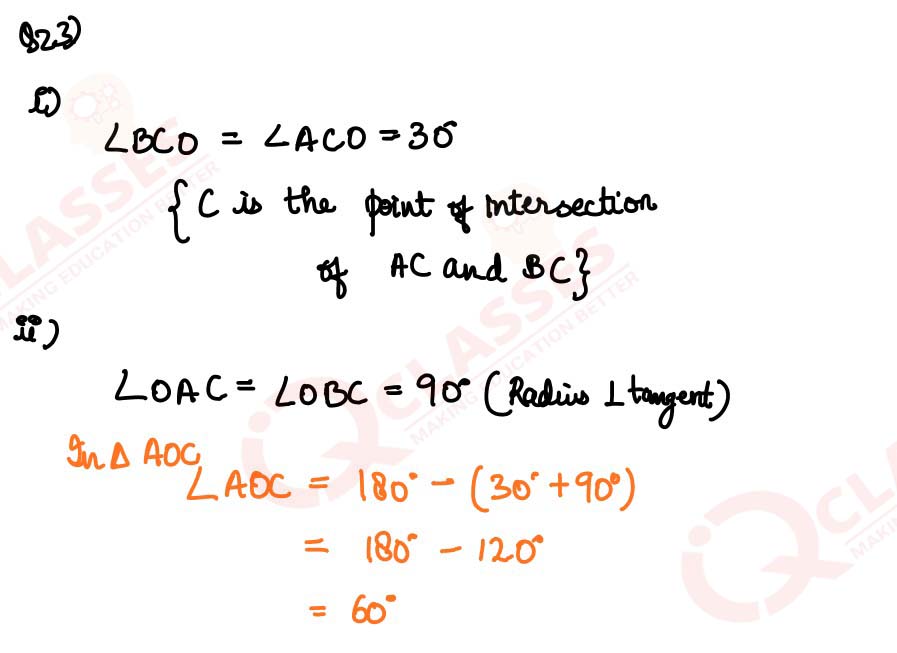 Q23)
i)
∠BCO = ∠ACO = 30°
{C is the point of intersection
of AC and BC}
ii)
∠OAC = ∠OBC = 90° (Radius ⊥ tangent)
In Δ AOC
∠AOC = 180° - (30° + 90°)
= 180° - 120°
= 60°
CLASSES
MAKING EDUCATION BETTER
IQ CLASSES
MAKING EDUCATION BETTER
IQ CLAS
MAKIN